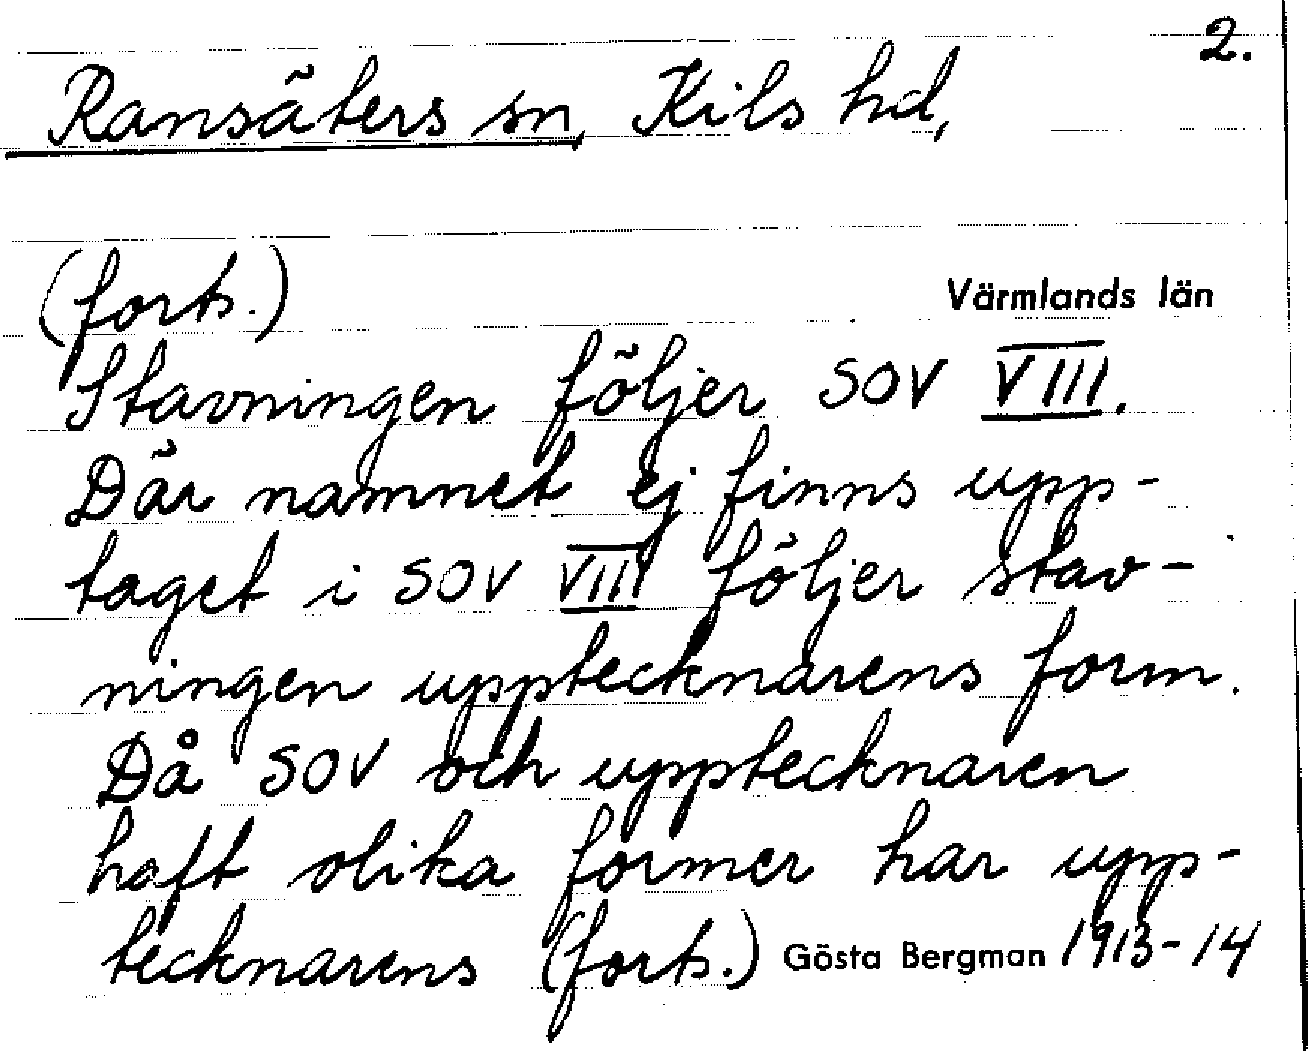 2.
Ransäters sn, Kils hd,
(forts.)
Värmlands län
Stavningen följer SOV VIII.
Där namnet ej finns upp-
taget i SOV VIII följer stav-
ningen upptecknarens form.
Då SOV och upptecknaren
haft olika former har upp-
tecknarens (forts.) Gösta Bergman 1913-14